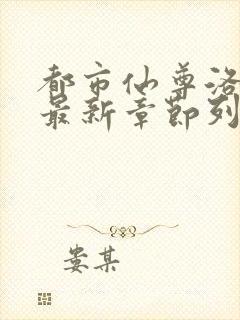 都市仙尊洛
最新章节列
娄某